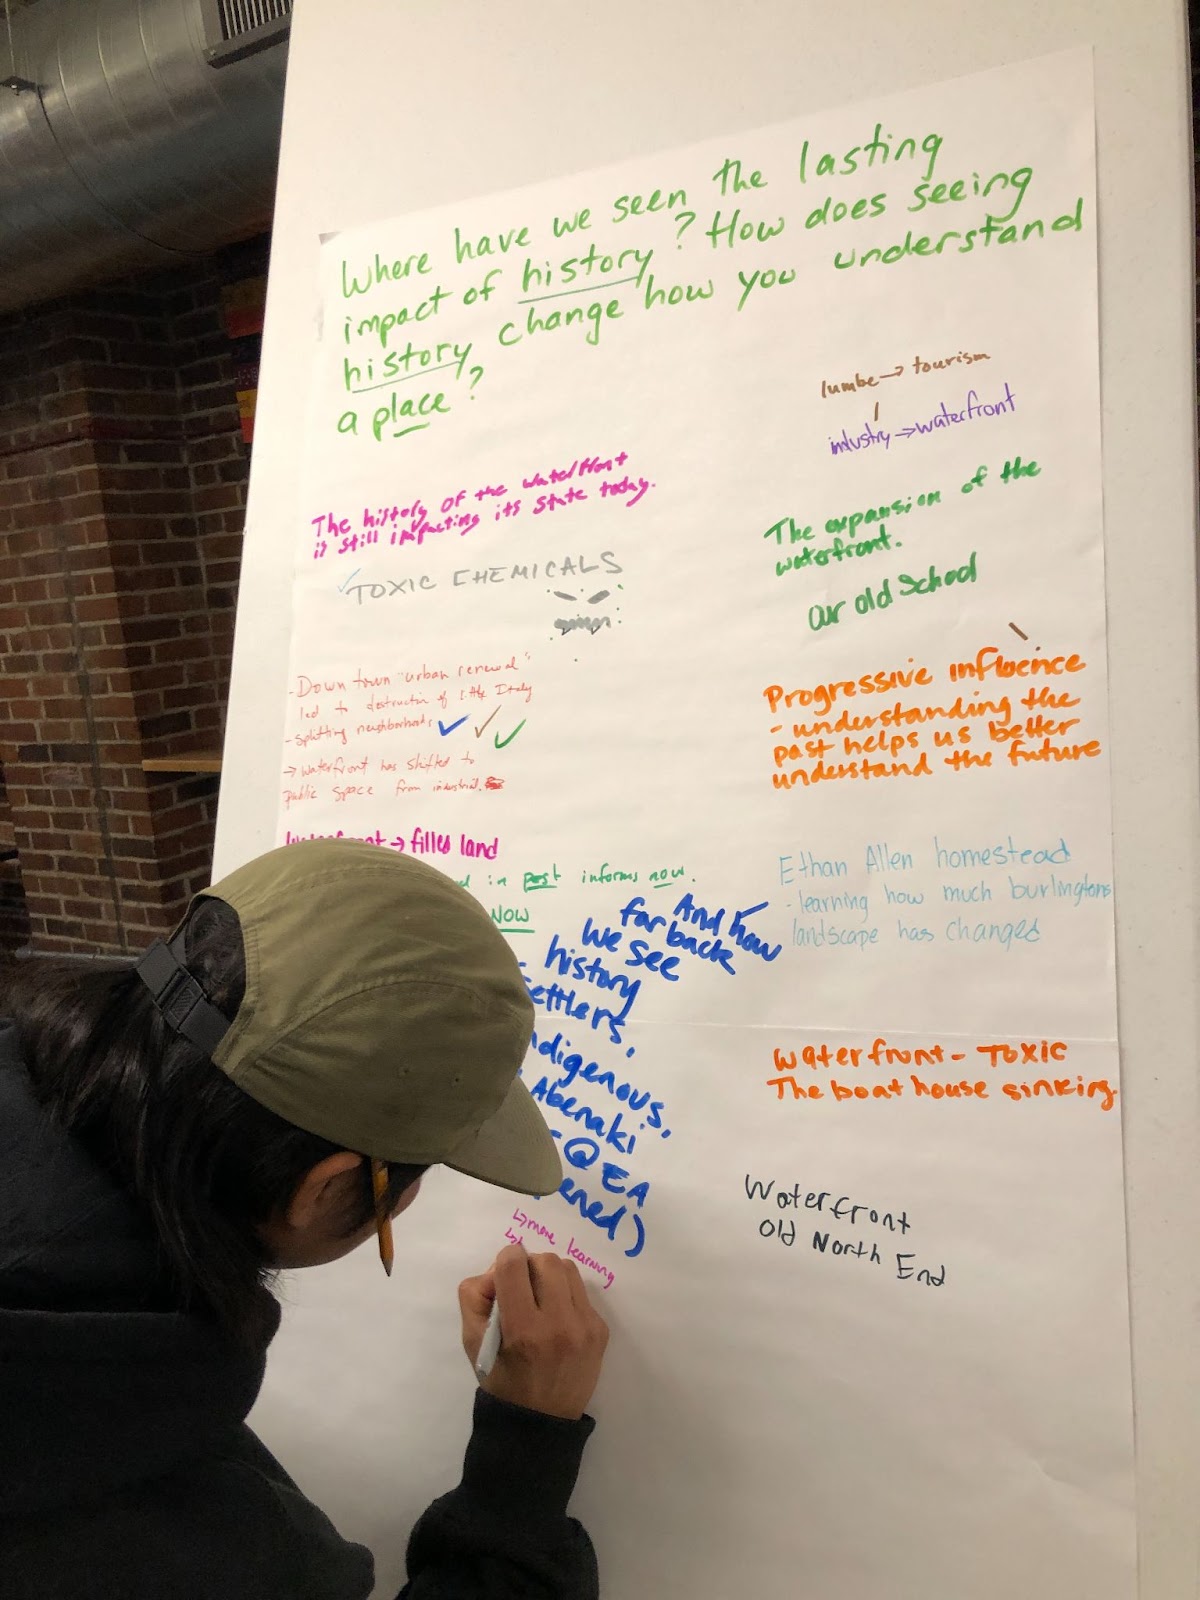 Where have we seen the lasting
impact of history? How does seeing
history change how you understand
a place?
lumbe → tourism
industry → waterfront
The history of the waterfront
is still impacting its state today.
TOXIC CHEMICALS
The expansion of the
waterfront.
our old School
- Down town "urban renewal"
led to destruction of Little Italy
- splitting neighborhoods
→ waterfront has shifted to
public space from industrial.
Progressive influence
- understanding the
past helps us better
understand the future
→ filles land
in past informs now.
NOW
Ethan Allen homestead
- learning how much burlingtons
landscape has changed
And how
far back
we see
history
settlers,
Indigenous,
Abenaki
- QEA
ened)
↳ more learning
↳
waterfront - TOXIC
The boat house sinking.
Waterfront
Old North End